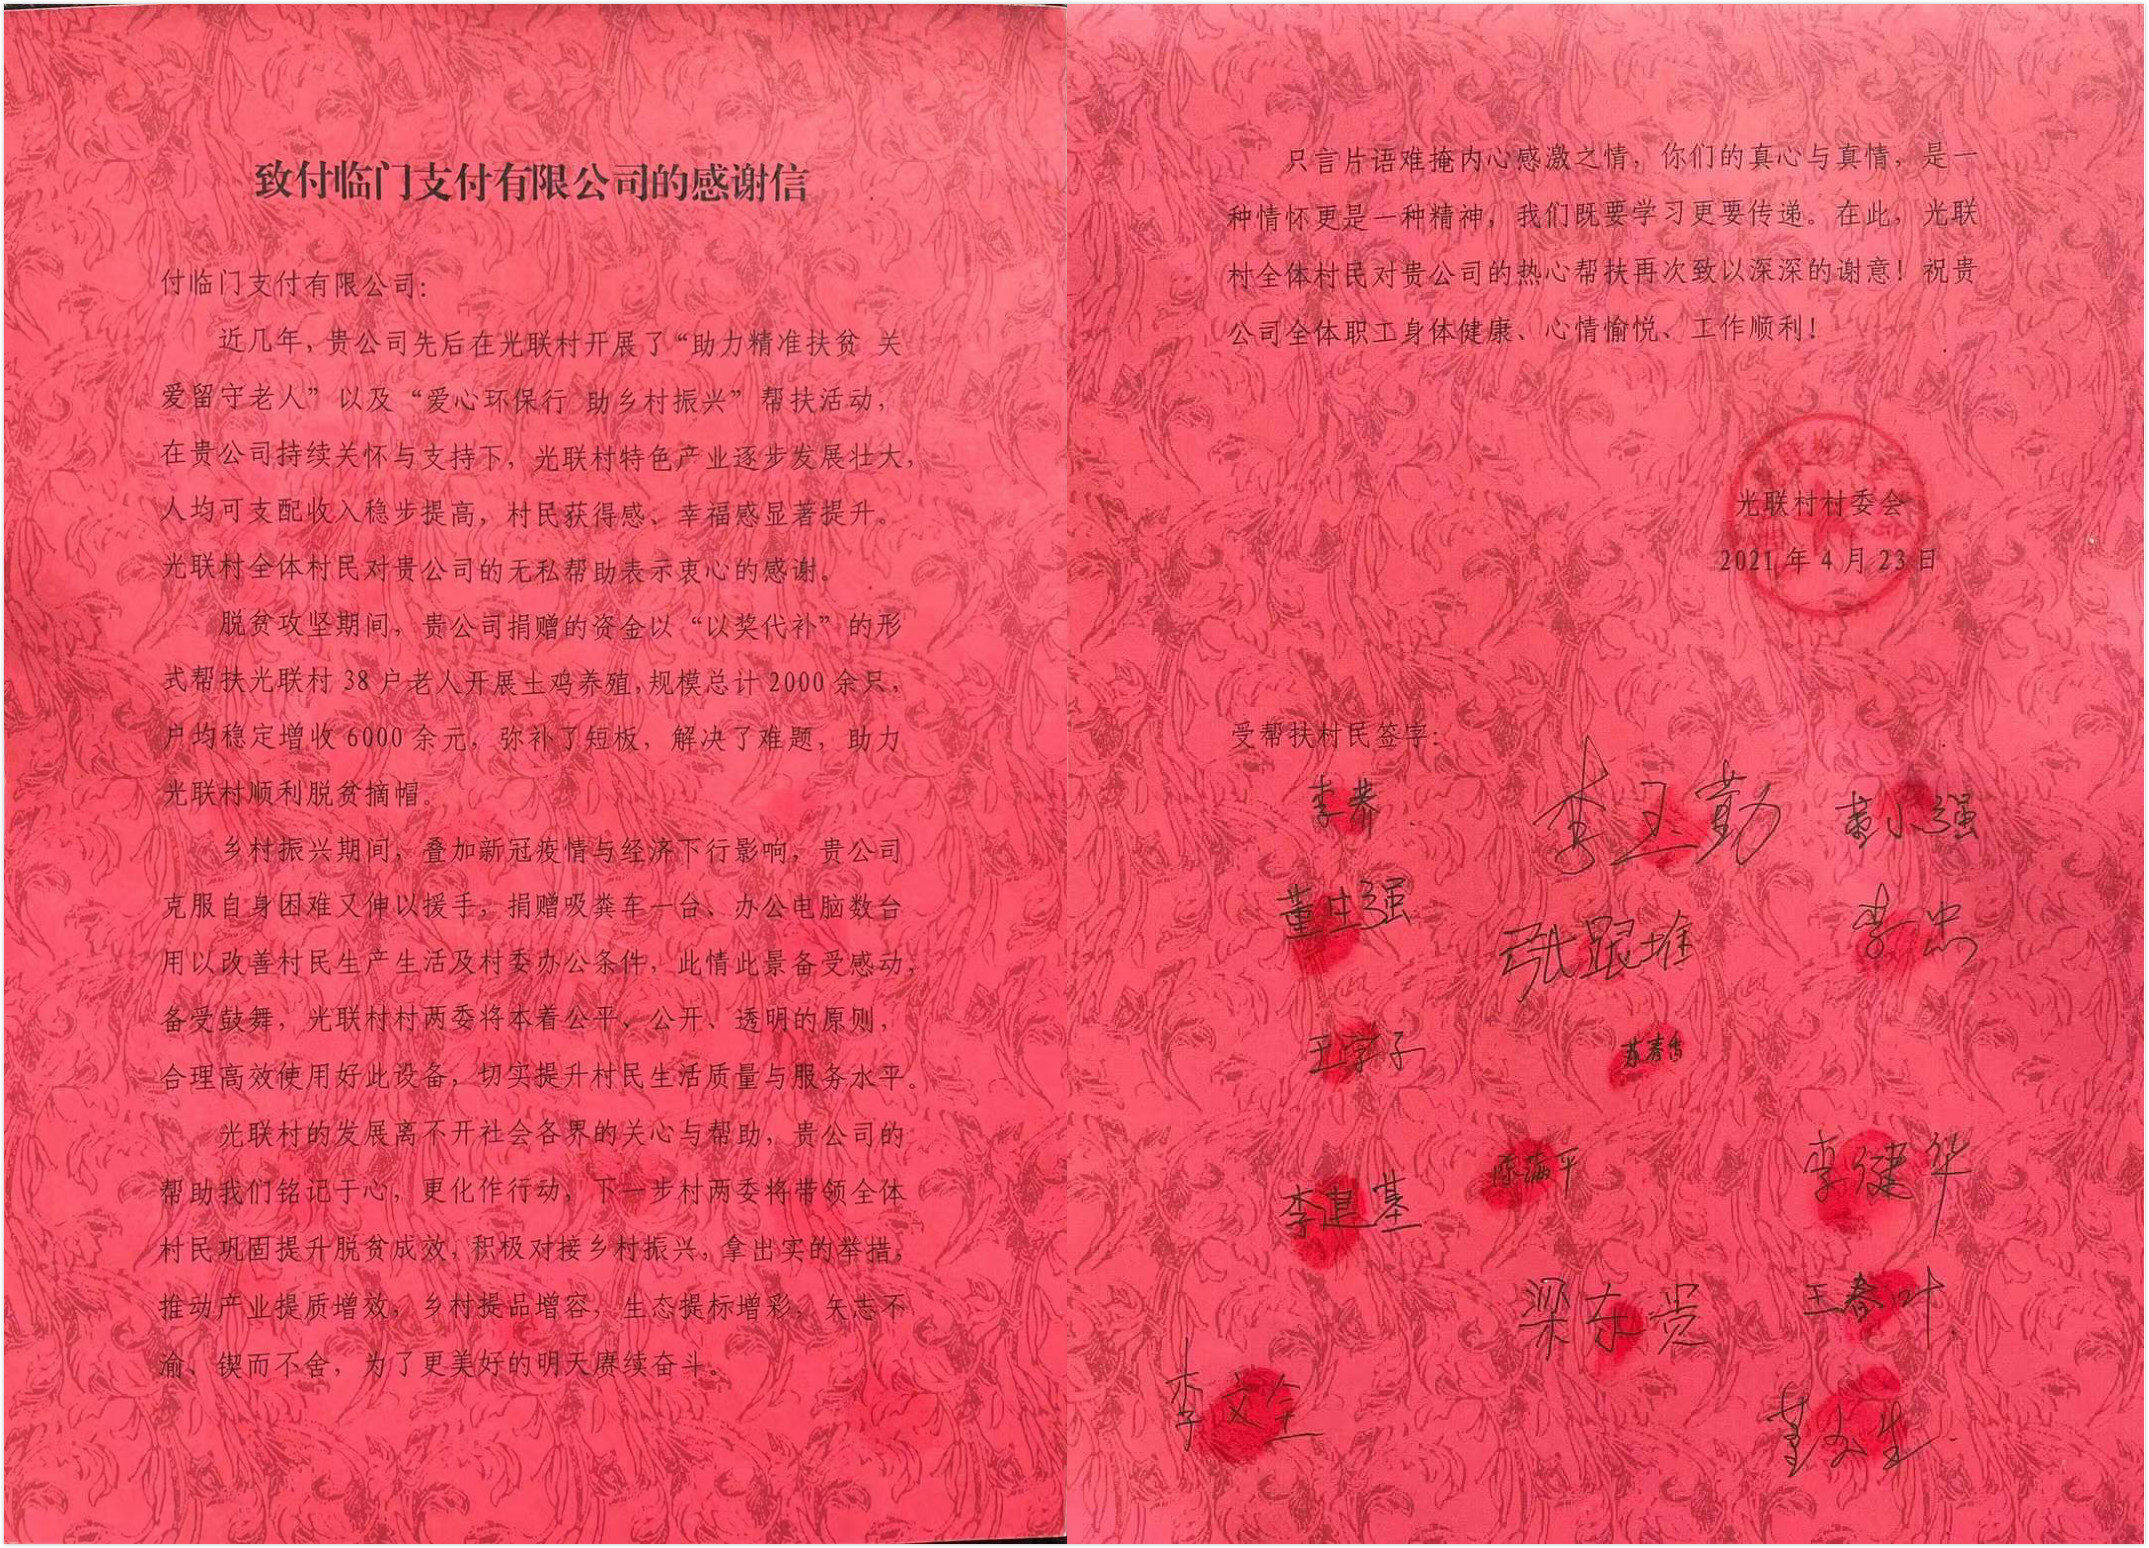 致付临门支付有限公司的感谢信
付临门支付有限公司：
近几年，贵公司先后在光联村开展了“助力精准扶贫 关
爱留守老人”以及“爱心环保行 助乡村振兴”帮扶活动，
在贵公司持续关怀与支持下，光联村特色产业逐步发展壮大，
人均可支配收入稳步提高，村民获得感、幸福感显著提升。
光联村全体村民对贵公司的无私帮助表示衷心的感谢。
脱贫攻坚期间，贵公司捐赠的资金以“以奖代补”的形
式帮扶光联村 38 户老人开展土鸡养殖，规模总计 2000 余只，
户均稳定增收 6000 余元，弥补了短板，解决了难题，助力
光联村顺利脱贫摘帽。
乡村振兴期间，叠加新冠疫情与经济下行影响，贵公司
克服自身困难又伸以援手，捐赠吸粪车一台、办公电脑数台
用以改善村民生产生活及村委办公条件，此情此景备受感动，
备受鼓舞，光联村村两委将本着公平、公开、透明的原则，
合理高效使用好此设备，切实提升村民生活质量与服务水平。
光联村的发展离不开社会各界的关心与帮助，贵公司的
帮助我们铭记于心，更化作行动，下一步村两委将带领全体
村民巩固提升脱贫成效，积极对接乡村振兴，拿出实的举措，
推动产业提质增效，乡村提品增容，生态提标增彩，矢志不
渝、锲而不舍，为了更美好的明天赓续奋斗。
只言片语难掩内心感激之情，你们的真心与真情，是一
种情怀更是一种精神，我们既要学习更要传递。在此，光联
村全体村民对贵公司的热心帮扶再次致以深深的谢意！祝贵
公司全体职工身体健康、心情愉悦、工作顺利！
光联村村委会
2021 年 4 月 23 日
受帮扶村民签字：
李养 李玉勤 董小强
董生强 张跟堆 李忠
王字子 苏春香
李建基 陈满平 李健华
梁东贵 王春叶
李文全 董文生